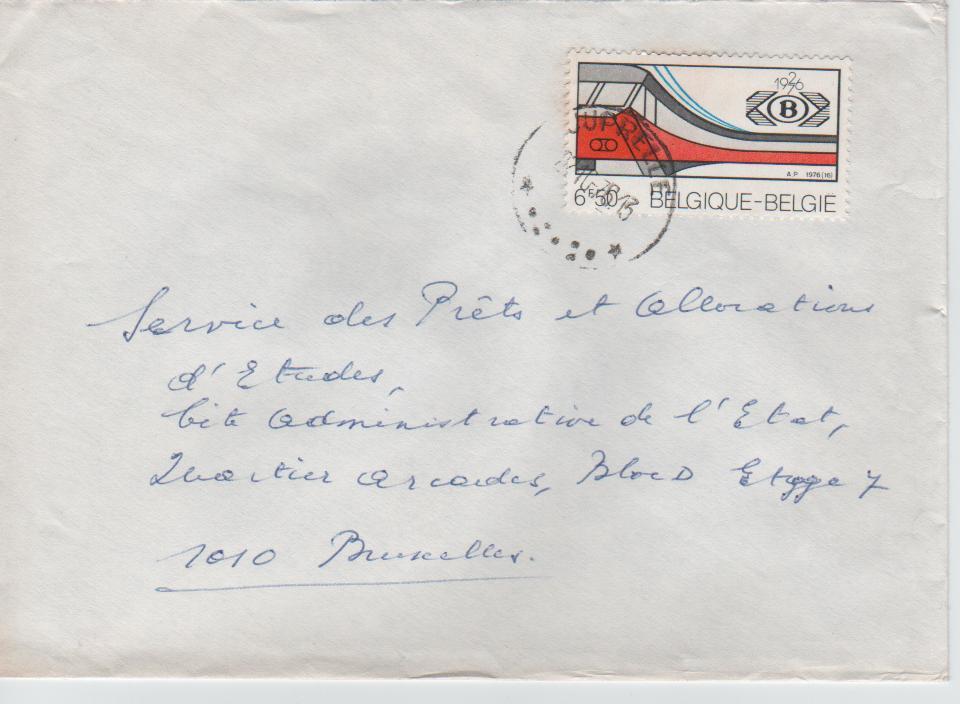 1926
1976
B
A.P. 1976 (16)
6F50 BELGIQUE-BELGIË
JUPRELLE
Service des Prêts et Allocations
d'Etudes,
Cité Administrative de l'Etat,
Quartier Arcades, Bloc D Etage 7
1010 Bruxelles.